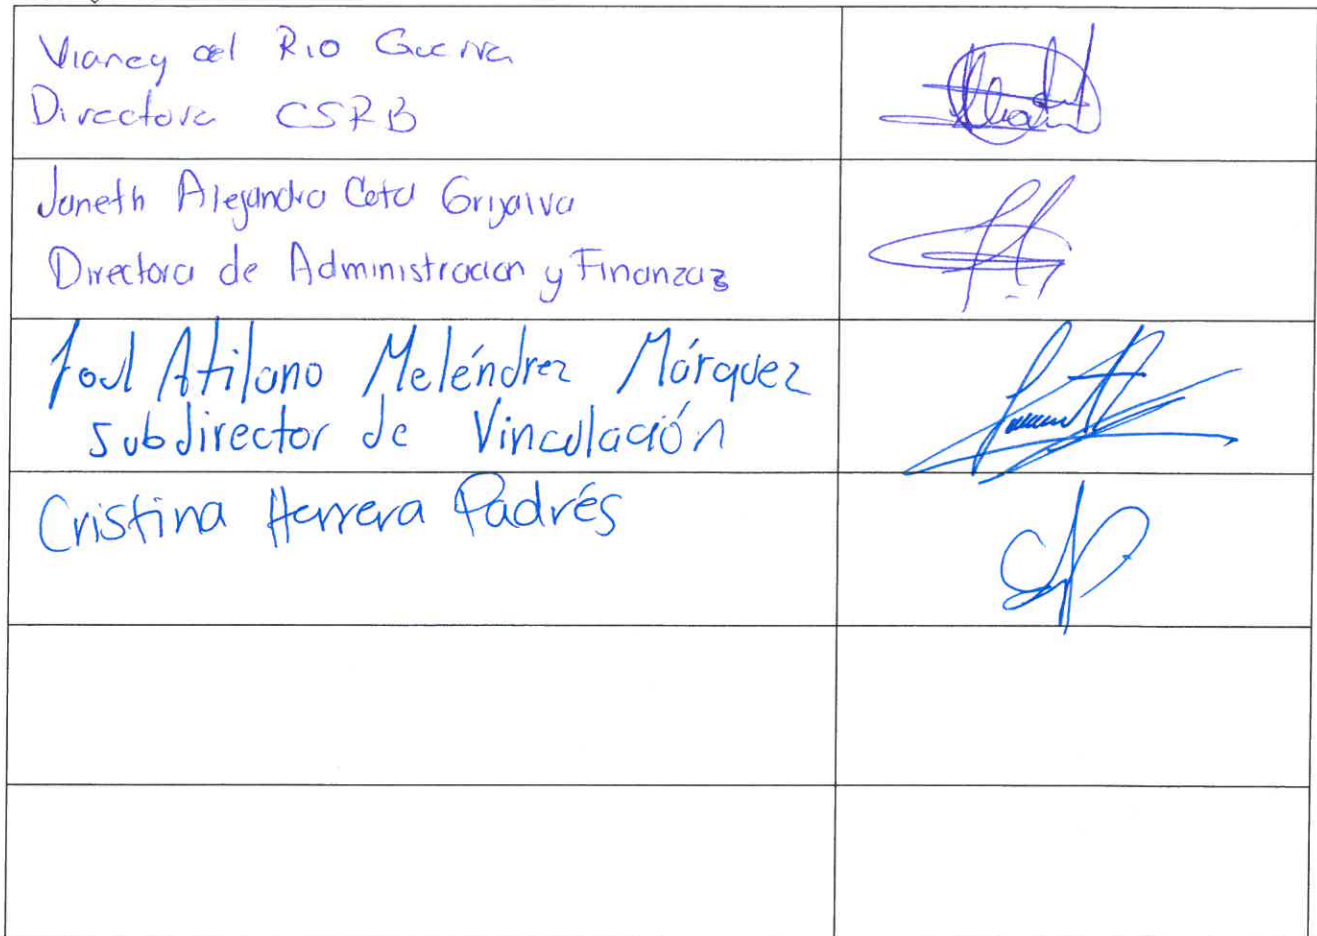 Vianey del Rio Guerra
Directora CSRB
Janeth Alejandra Cota Grijalva
Directora de Administracion y Finanzas
Atilano Meléndrez Márquez
Subdirector de Vinculación
Cristina Herrera Padrés